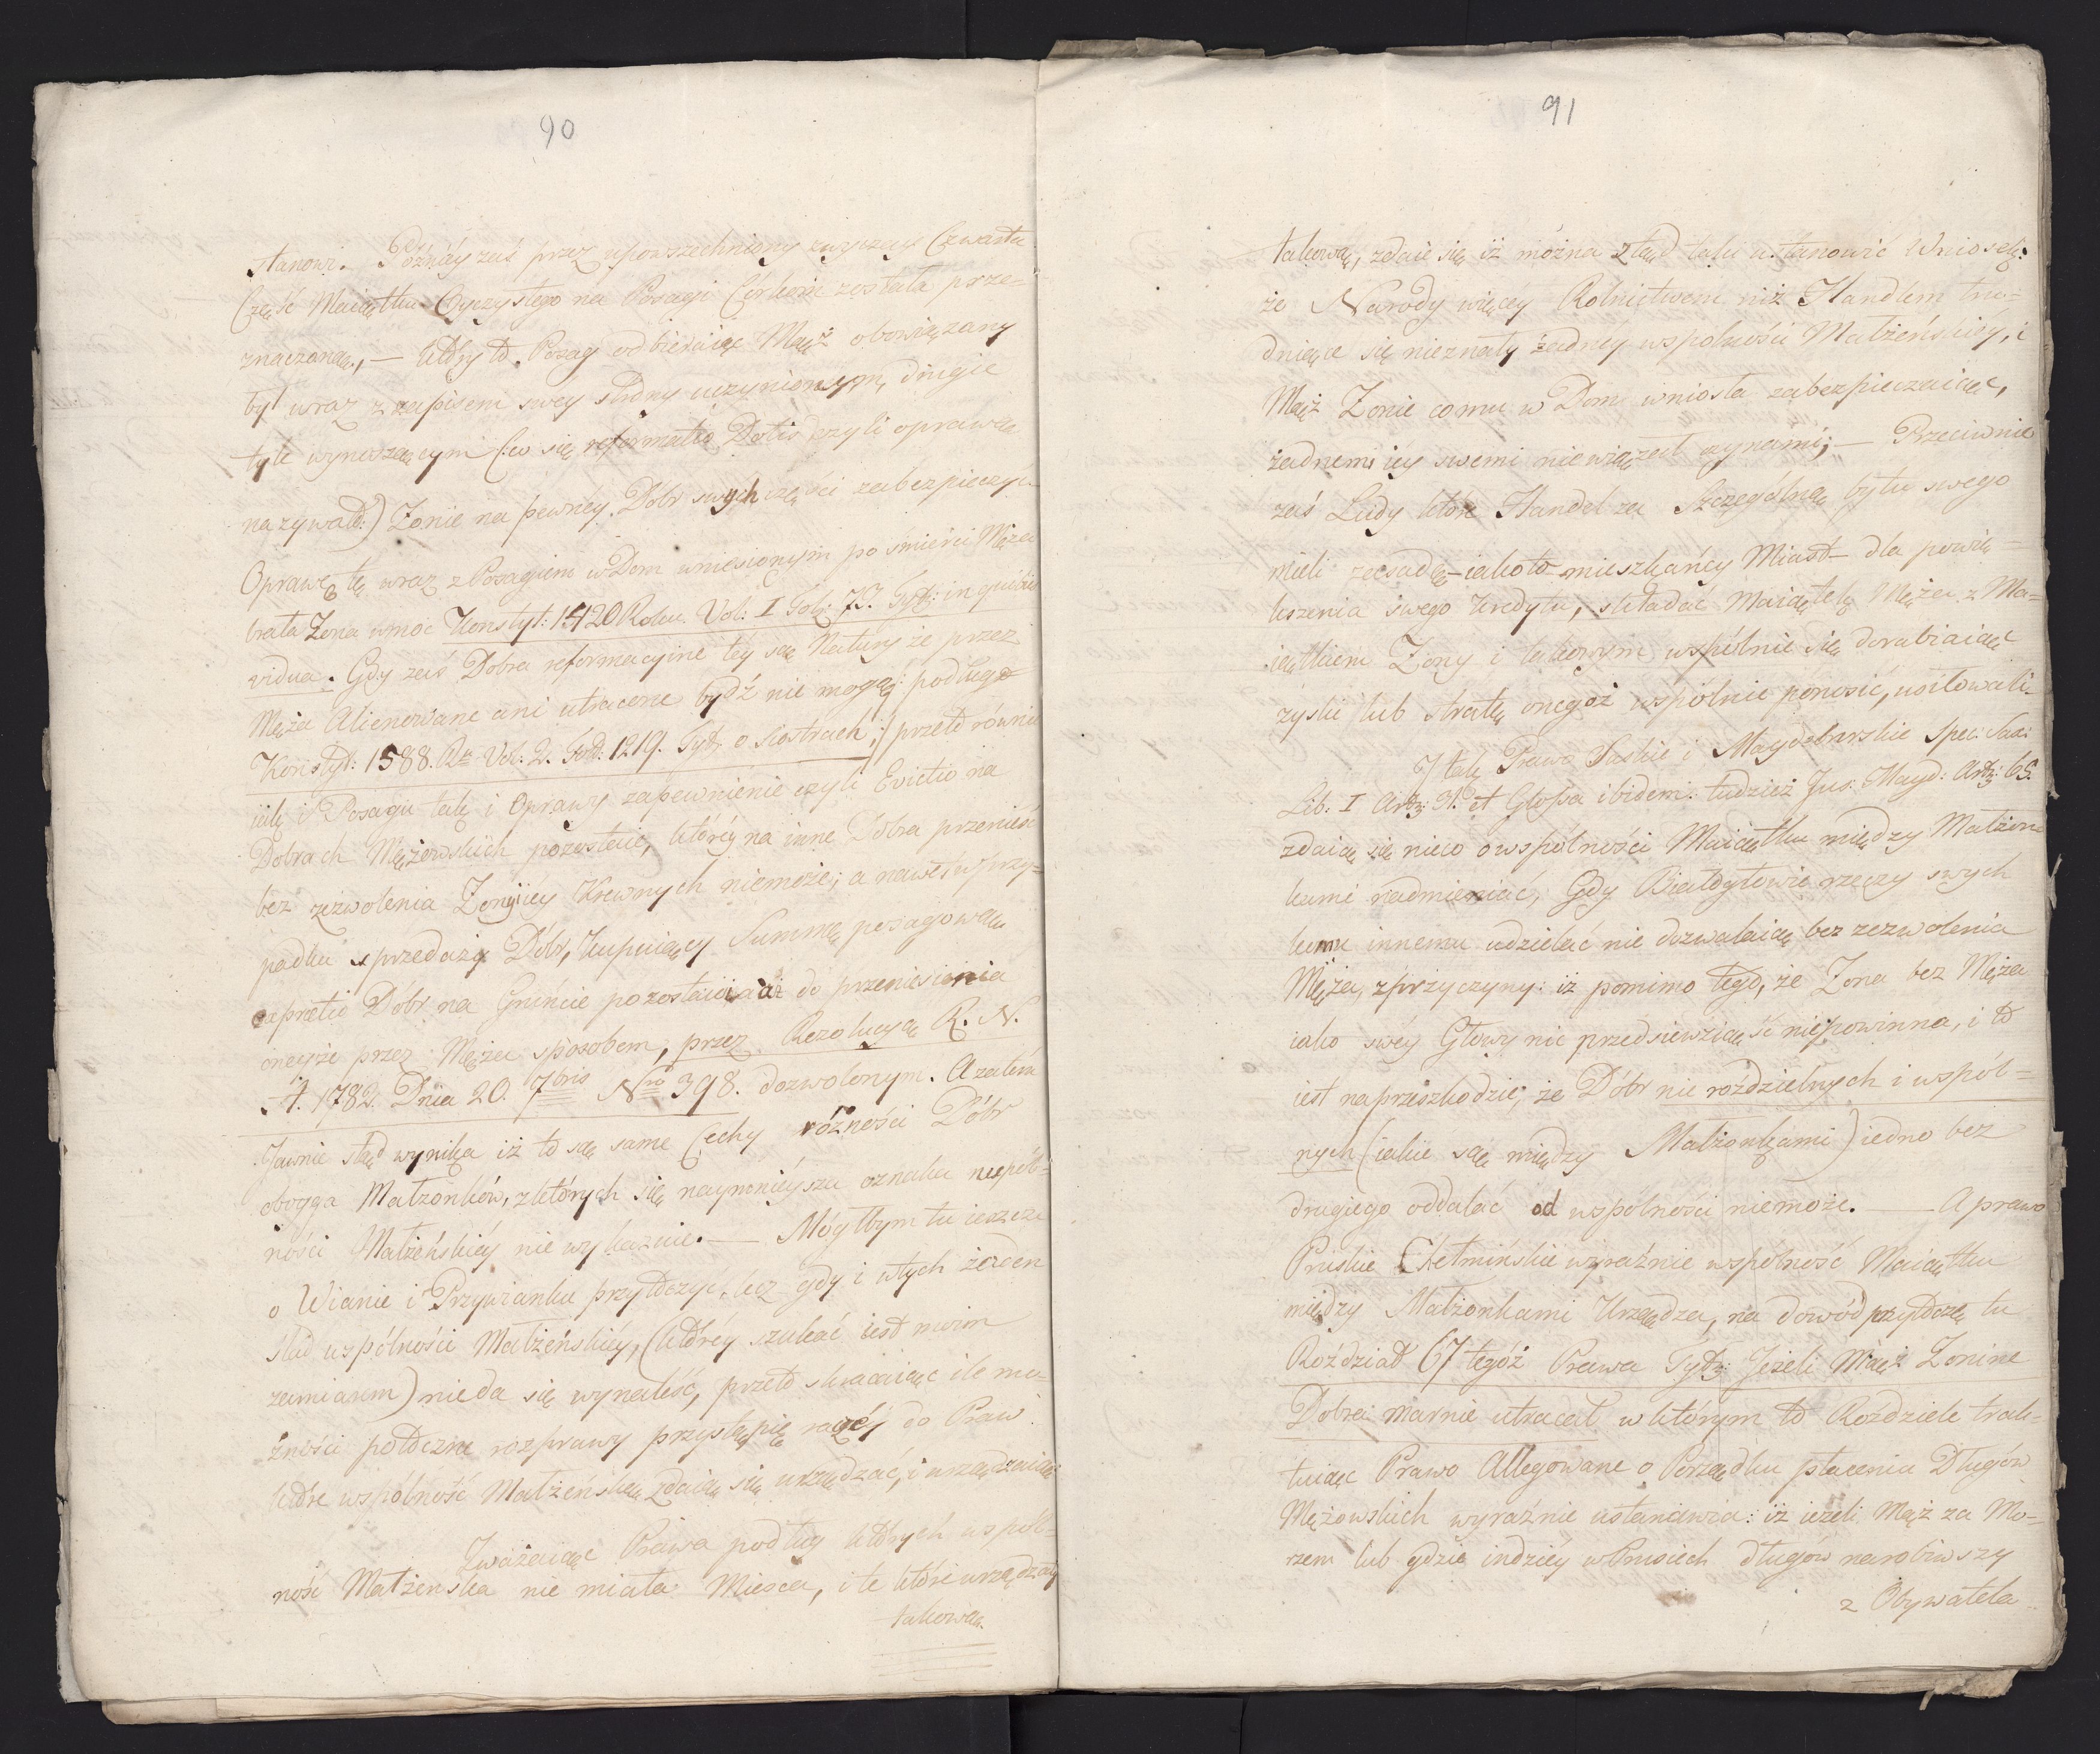 90
stanowi. Poźniéy zaś przez upowszechniony zwyczay Czwarta
Część Maiątku Oyczystego na Posagi Córkom została prze=
znaczoną, — który to Posag odbieraiąc Mąż obowiązany
był wraz z zapisem swey strony uczynionym, drugie
tyle wynoszącym (:co się reformatio Dotis czyli oprawa
nazywało:) Żonie na pewnéy Dobr swych części zabezpieczyć.
Oprawę tę wraz z Posagiem w Dom wniesionym po smierci Męża
brała Żona umoc Konstyt: 1420 Roku. Vol: I Fol: 75. Tyt: in quibus
vidua. Gdy zaś Dobra reformacyine téy są Natury że przez
Męża Alienowane ani utracone bydź nie mogą: podług
Konstyt: 1588. Ru Vol: 2. Fol: 1219. Tyt: o siostrach:/ przeto równie
iak i Posagu tak i Oprawy zapewnienie czyli Evictio na
Dobrach Mężowskich pozostaie, któréy na inne Dobra przenieść
bez zezwolenia Żony i iéy Krewnych niemoże; a nawet w przy=
padku sprzedaży Dóbr, Kupuiący Summę posagową
expretio Dóbr na Gruńcie pozostawia aż do przeniesienia
oneyże przez Męża sposobem, przez Rezolucyą R. N.
A. 1782. Dnia 20. 7bris Nro 398. dozwolonym. A zatém
Jawnie stąd wynika iż to są same Cechy różności Dóbr
oboyga Małżonków, z których się naymnieysza oznaka wspól=
ności Małżeńskiéy nie wykazuie. — Mógłbym tu ieszcze
o Wianie i Przywianku przytoczyć, lecz gdy i w tych żaden
ślad wspólności Małżeńskiéy, (któréy szukać iest moim
zamiarem) nie da się wynaleść, przeto skracaiąc ile mo=
żności potoczne rozprawy przystąpię raczéy do Praw
które wspólność Małżeńską zdaią się urządzać, i urządzaią.
Zważaiąc Prawa podług których wspól=
ność Małżenska nie miała Miesca, i te które urządzały
takową.
91
takową, zdaie się iż można ztąd taki ustanowić Wniosek:
że Narody więcéy Rolnictwem niż Handlem tru=
dniące się nieznały żadney wspolności Małżeńskiéy, i
Mąż Żonie co mu w Dom wniosła zabezpieczaiąc,
żadnemi iéy swemi niewiązał czynami; — Przeciwnie
zaś Ludy które Handel za Szczególną bytu swego
mieli zasadę — iako to mieszkańcy Miast — dla powię=
kszenia swego Kredytu, składać Maiątek Męża z Ma=
iątkiem Żony i takowym wspólnie się dorabiaiąc
zyski lub stratę onegoż wspólnie ponosić, usiłowali.
I tak Prawo Saskie i Maydeburskie Spec: Sax:
Lib: I Art: 31. et Glossa ibidem: tudzież Jus: Mayd: Art: 65.
zdaią się nieco o wspólności Maiątku między Małżon=
kami nadmieniać, Gdy Białogłowie rzeczy swych
komu innemu udzielać nie dozwalaią bez zezwolenia
Męża, z przyczyny: iż pomimo tego, że Żona bez Męża
iako swéy Głowy nic przedsiewziąść niepowinna, i to
iest na przeszkodzie, że Dóbr nie rozdzielnych i wspól=
nych (iakie są między Małżonkami) iedno bez
drugiego oddalać od wspólności niemoże. — A prawo
Pruskie Chełmińskie wyraźnie wspólność Maiątku
między Małżonkami Urządza, na dowód przytoczę tu
Roździał 67 tegóż Prawa Tyt: Jeżeli Mąż Żonine
Dobra marnie utracał w którym to Roździele trak=
tuiąc Prawo Allegowane o Porządku płacenia Długów
Mężowskich wyraźnie ustanawia: iż ieżeli Mąż za Mo=
rzem lub gdzie indziéy w Prusiech długów narobiwszy
z Obywatela